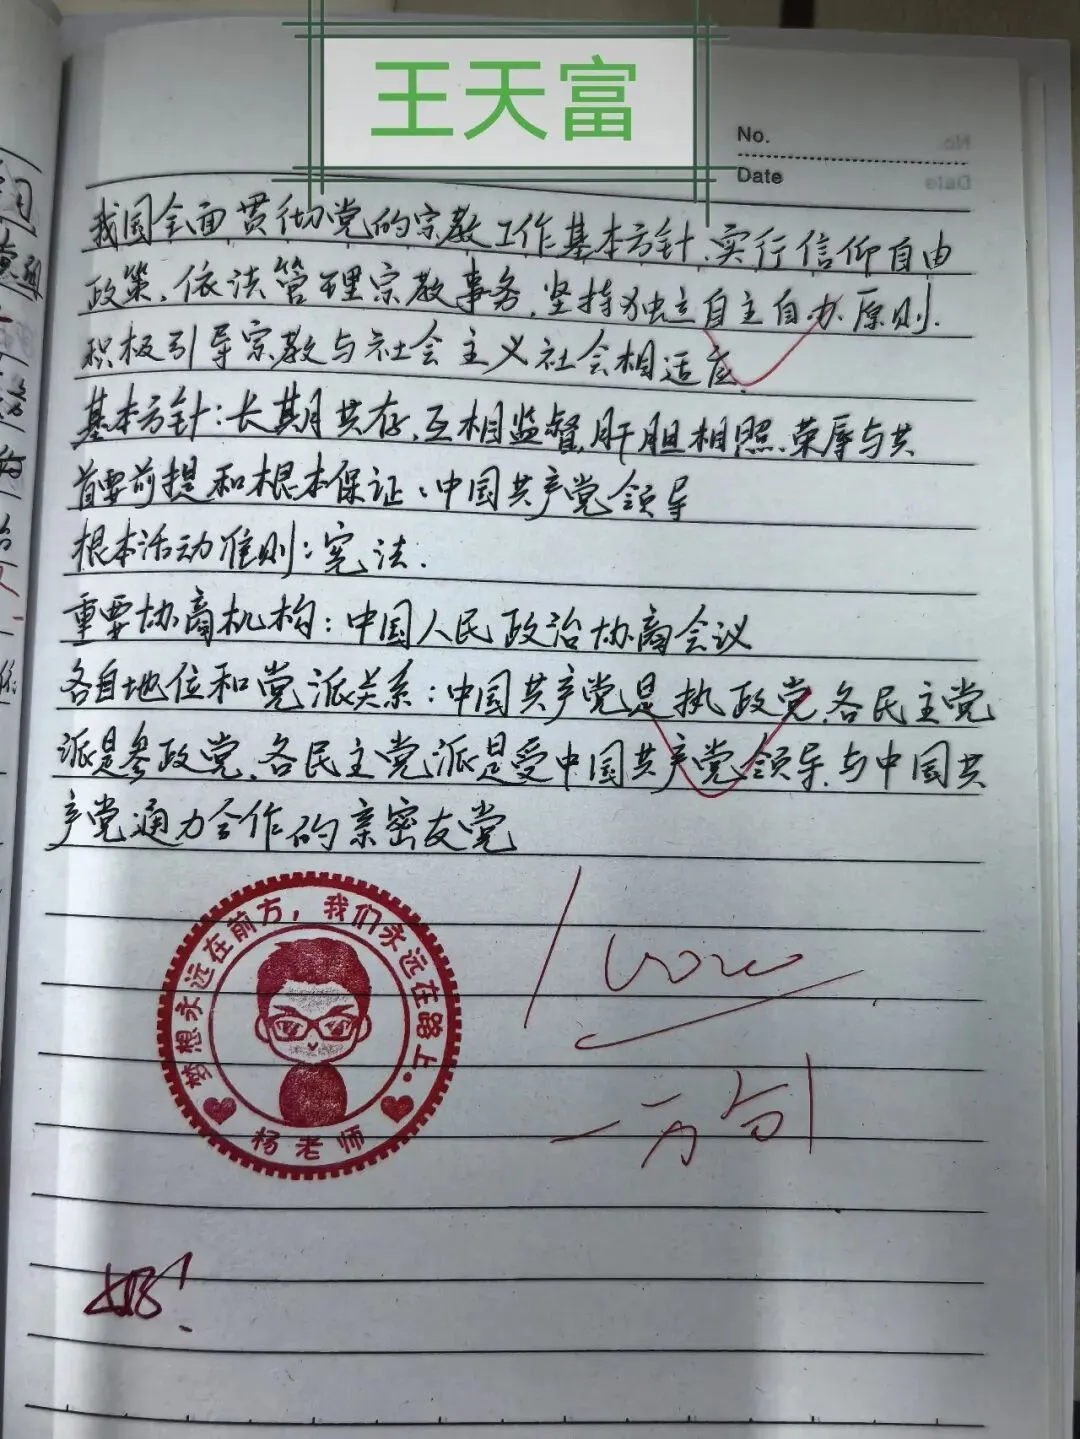 王天富
No.
Date
我国全面贯彻党的宗教工作基本方针、实行信仰自由
政策、依法管理宗教事务、坚持独立自主自办原则.
积极引导宗教与社会主义社会相适应.
基本方针:长期共存、互相监督、肝胆相照、荣辱与共
首要前提和根本保证、中国共产党领导
根本活动准则:宪法.
重要协商机构:中国人民政治协商会议
各自地位和党派关系:中国共产党是执政党、各民主党
派是参政党、各民主党派是受中国共产党领导、与中国共
产党通力合作的亲密友党
梦想永远在前方，我们永远在路上。
杨老师